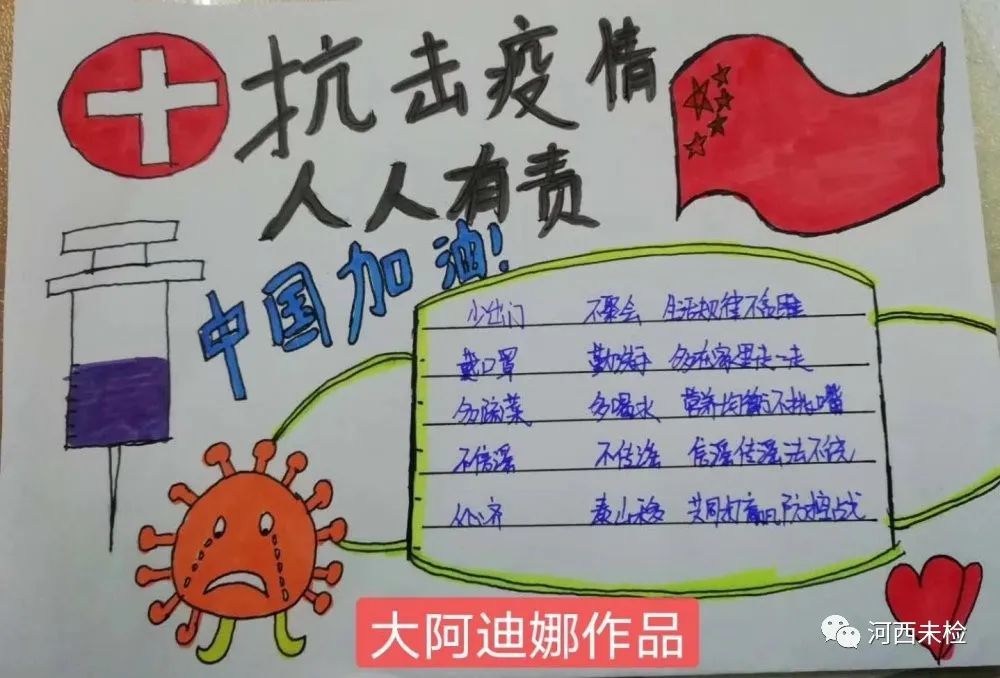 抗击疫情
人人有责
中国加油!
少出门 不聚会 生活规律不多睡
戴口罩 勤洗手 多在家里走一走
多蔬菜 多喝水 营养均衡不挑嘴
不信谣 不传谣 信谣传谣法不饶
人心齐 泰山移 共同打赢防控战
大阿迪娜作品
河西未检